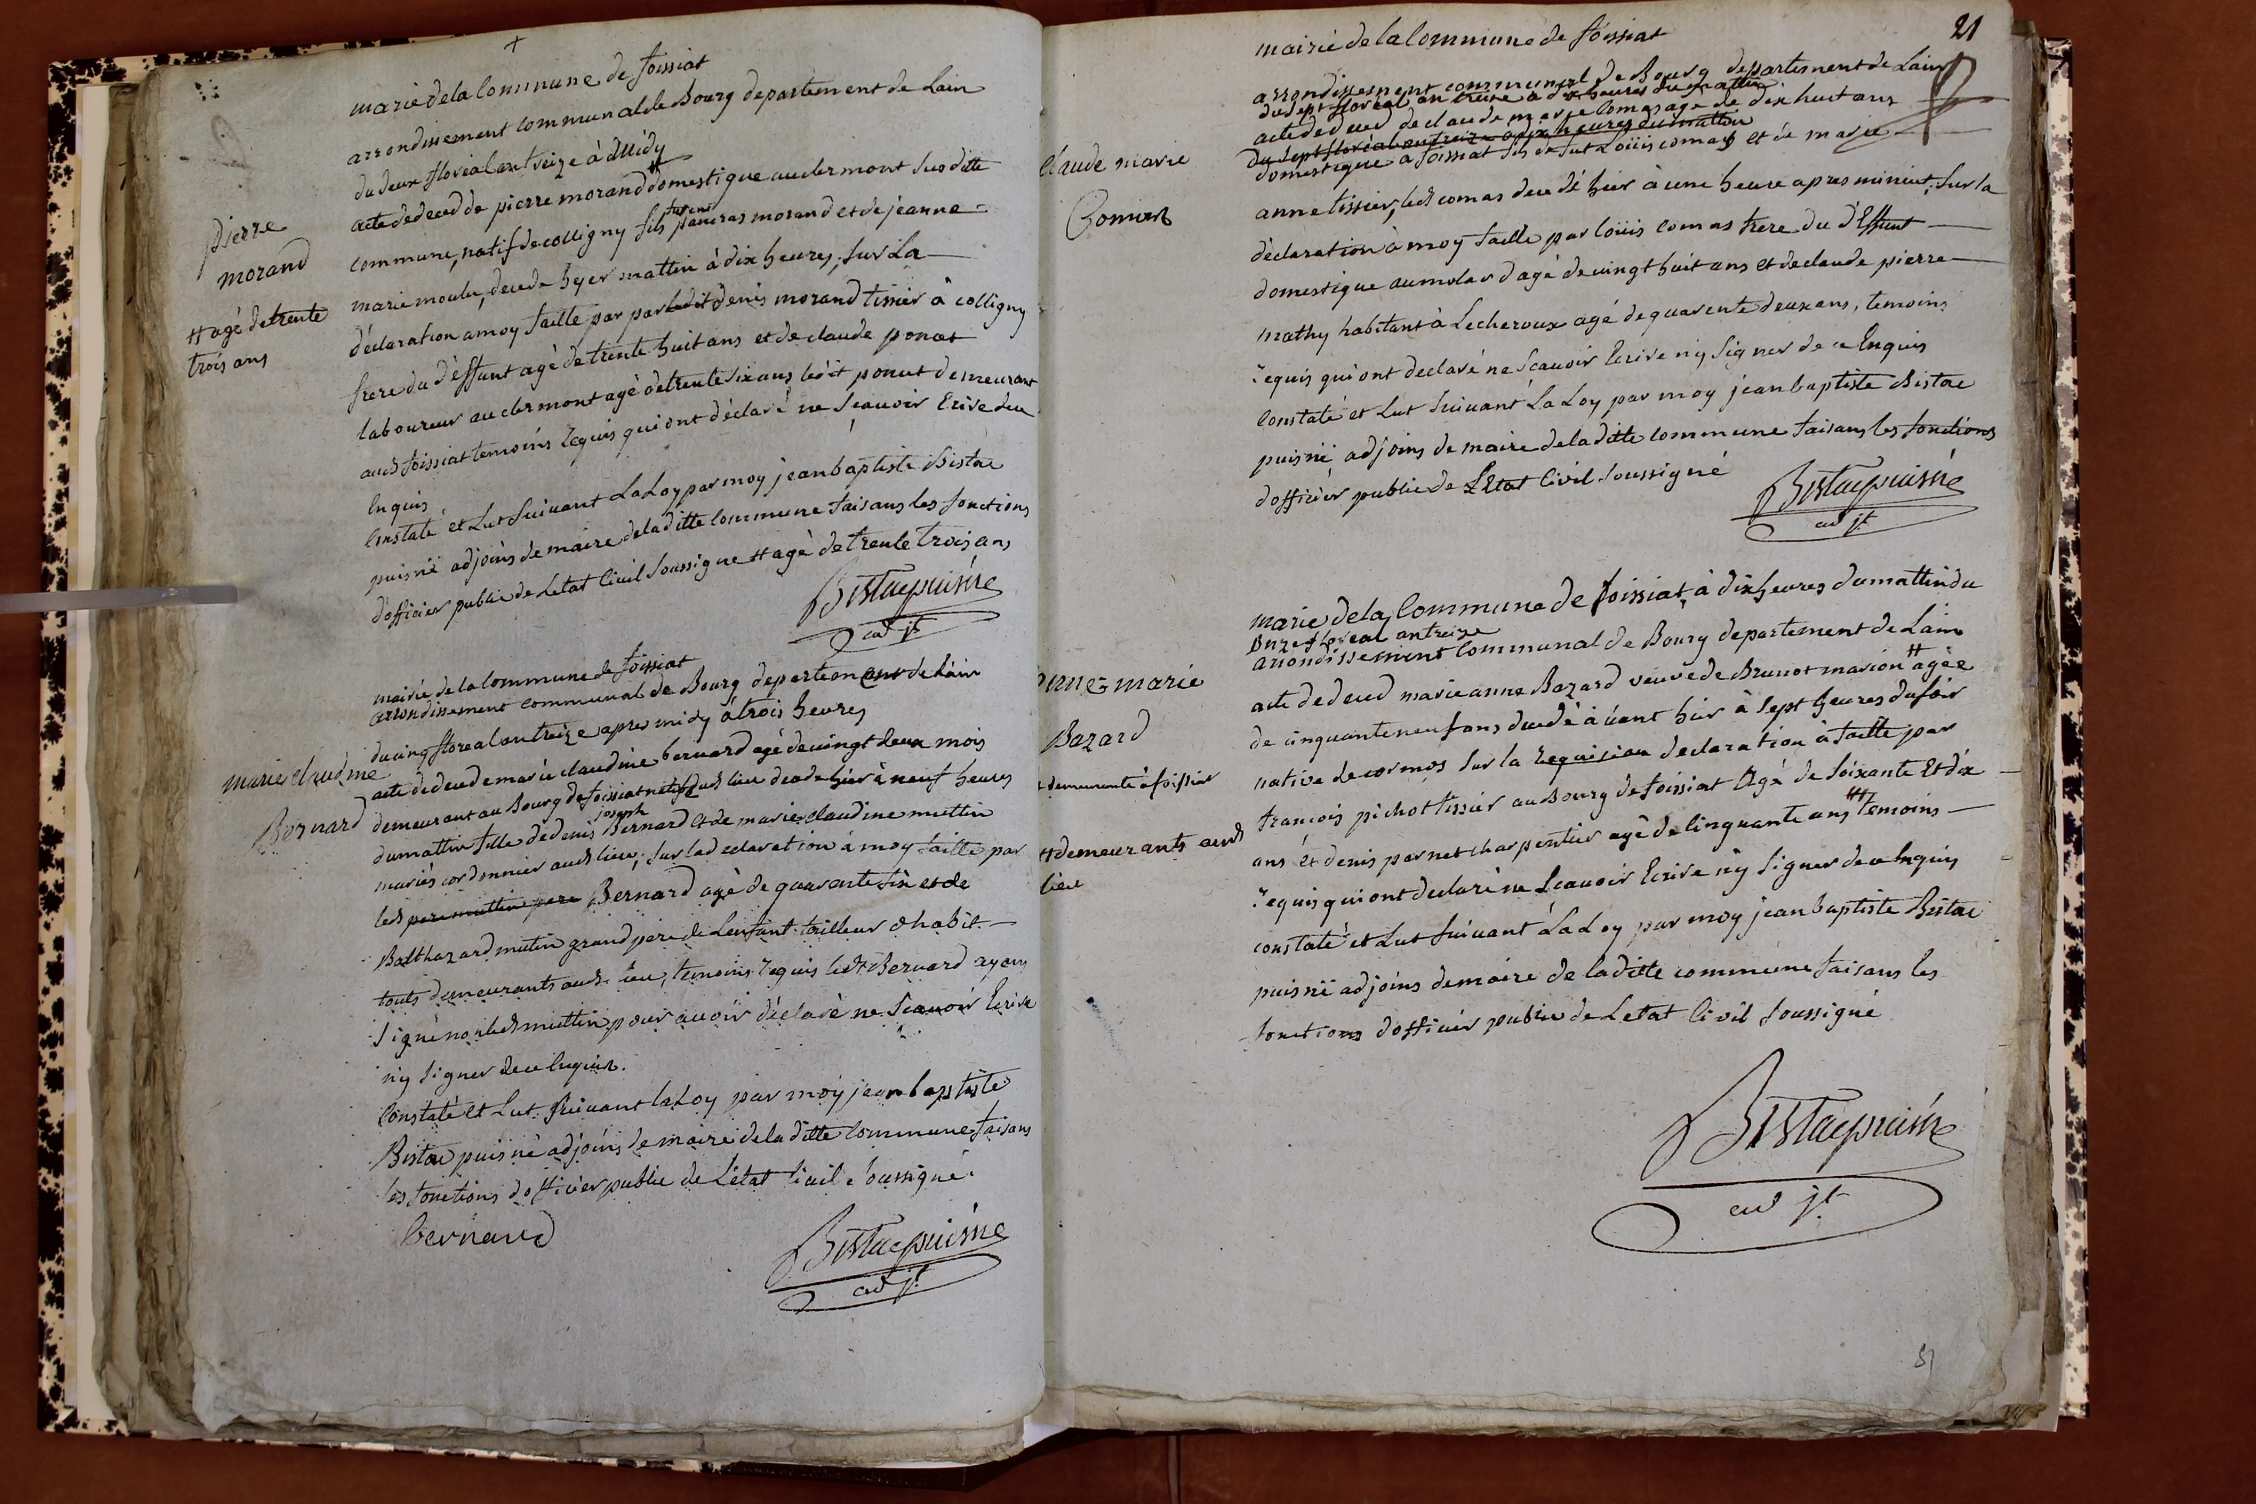 marie dela Commune de foissiat
arrondissement communal de Bourg departement de Lain
du deux floréal an treize à Midy
acte de deced de pierre morand # domestique au clermont susditte
commune, natif de colligny fils fut en pancras morand et de jeanne
marie moulu, decede hyer mattin à dix heures, sur La
déclaration a moy faitte par par ledit denis morand tissier à colligny
frere du déffunt agé de trente huit ans et de claude ponat
laboureur au clermont agé de trente six ans ledit ponat demeurant
aud foissiat temoins requis qui ont déclaré ne scauoir Ecrire de ce
Enquis
Constaté et Lut suivant La Loy par moy jean baptiste Bistac
puisné adjoins de maire dela ditte Commune faisans les fonctions
dofficier public de Letat Civil soussigne # agé de trente trois ans
Bistac puisné
adjt
Pierre
morand
# agé de trente
trois ans
mairie de la Commune de foissiat
arrondissement communal de Bourg departement de Lain
du cinq floreal an treize apre midy à trois heures
acte de deced de marie claudine bernard agé de vingt deux mois
demeurant au Bourg de foissiat natif dud lieu decede hier à neuf heures
du mattin fille de denis joseph Bernard et de marie claudine muttin
mariés cordonnier aud lieu, sur la declaration à moy faitte par
led pere muttin pere Bernard agé de quarente six et de
Balthazard mutin grand pere de Lenfant tailleur dhabit
touts demeurants aud lieu, temoins requis ledt Bernard ayant
signé non led muttin pour auoir déclaré ne Scauoir Ecrire
ny signer de ce Enquis.
Constaté et Lut suivant la Loy par moy jean baptiste
Bistac puisné adjoins de maire dela ditte Commune faisans
les fonctions dofficier public de Létat Ciuil soussigné
bernard
Bistac puisné
adjt
marie claudine
Bernard
21
mairie de la Commune de foissiat
arrondissement communal de Bourg departement de Lain
du sept floréal an treize à dix heures du mattin
acte de deced de claude marie Comas agé de dix huit ans
du sept floréal an treize à dix heures du mattin
domestique à foissiat fils de fut Louis comas et de marie
anne tissier, led comas decedé hier à une heure apres minuit, sur la
déclaration à moy faitte par loüis comas frere du déffunt
domestique au molar dagé de vingt huit ans et de claude pierre
mathy habitant à Lecheroux agé de quarente deux ans, temoins
requis qui ont declaré ne Scauoir Ecrire ny signer de ce Enquis
Constaté et Lut suivant La Loy par moy jean baptiste Bistac
puisné adjoins de maire dela ditte commune faisans les fonctions
dofficier public de LEtat Civil soussigné
Bistac puisné
adjt
Claude marie
Comas
marie dela Commune de foissiat, à dix heures du mattin du
onze floreal an treize
arrondissement Communal de Bourg departement de Lain
acte de deced marie anne Bazard veuve de Brunot marion # agée
de cinquante neuf ans decedé àuant hier à sept heures du soir
native de cormos sur la Requisision declaration à faitte par
francois pichot tissier au Bourg de foissiat Agé de soixante Et dix
ans et denis pernet charpentier agé de Cinquante ans ## temoins
requis qui ont declaré ne Scauoir Ecrire ny signer de ce Enquis
constaté et Lut suivant La Loy par moy jean baptiste Bistac
puisné adjoins de maire de la ditte commune faisans les
fonctions dofficier public de Letat Civil soussigné
Bistac puisné
adjt
anne marie
Bazard
# demeurante à foissiat
## demeurants aud
lieu